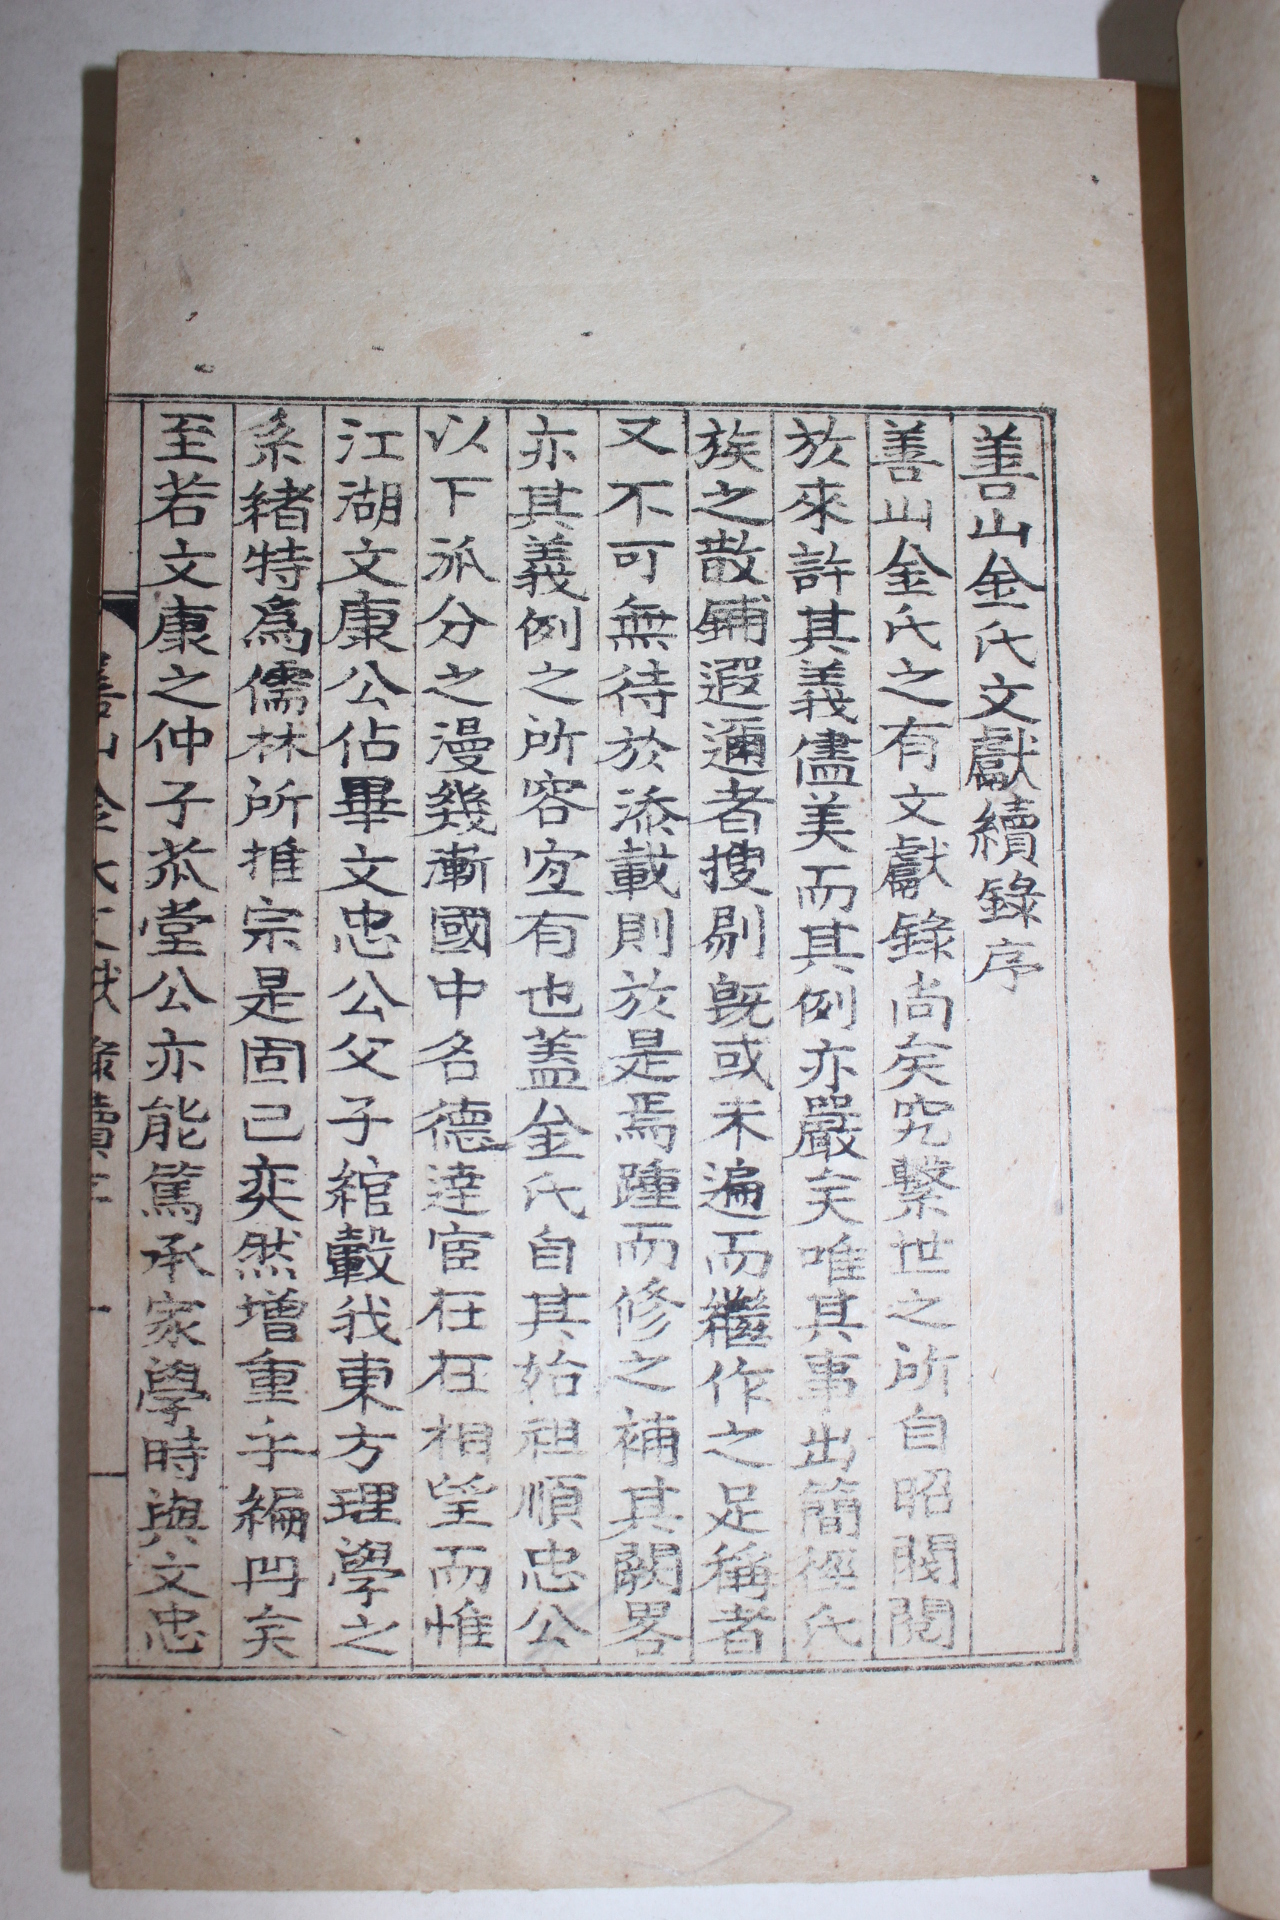 善山金氏文獻續錄序
善山金氏之有文獻錄尚矣究繫世之所自昭閥閱
於來許其義儘美而其例亦嚴矣唯其事出簡徑氏
族之散鋪遐邇者搜剔旣或未遍而繼作之足稱者
又不可無待於添載則於是焉踵而修之補其闕畧
亦其義例之所容宜有也盖金氏自其始祖順忠公
以下派分之漫幾漸國中名德達宦往往相望而惟
江湖文康公佔畢文忠公父子綰轂我東方理學之
系緖特爲儒林所推宗是固已奕然增重乎編冊矣
至若文康之仲子茶堂公亦能篤承家學時與文忠
善山金氏文獻錄續序
一